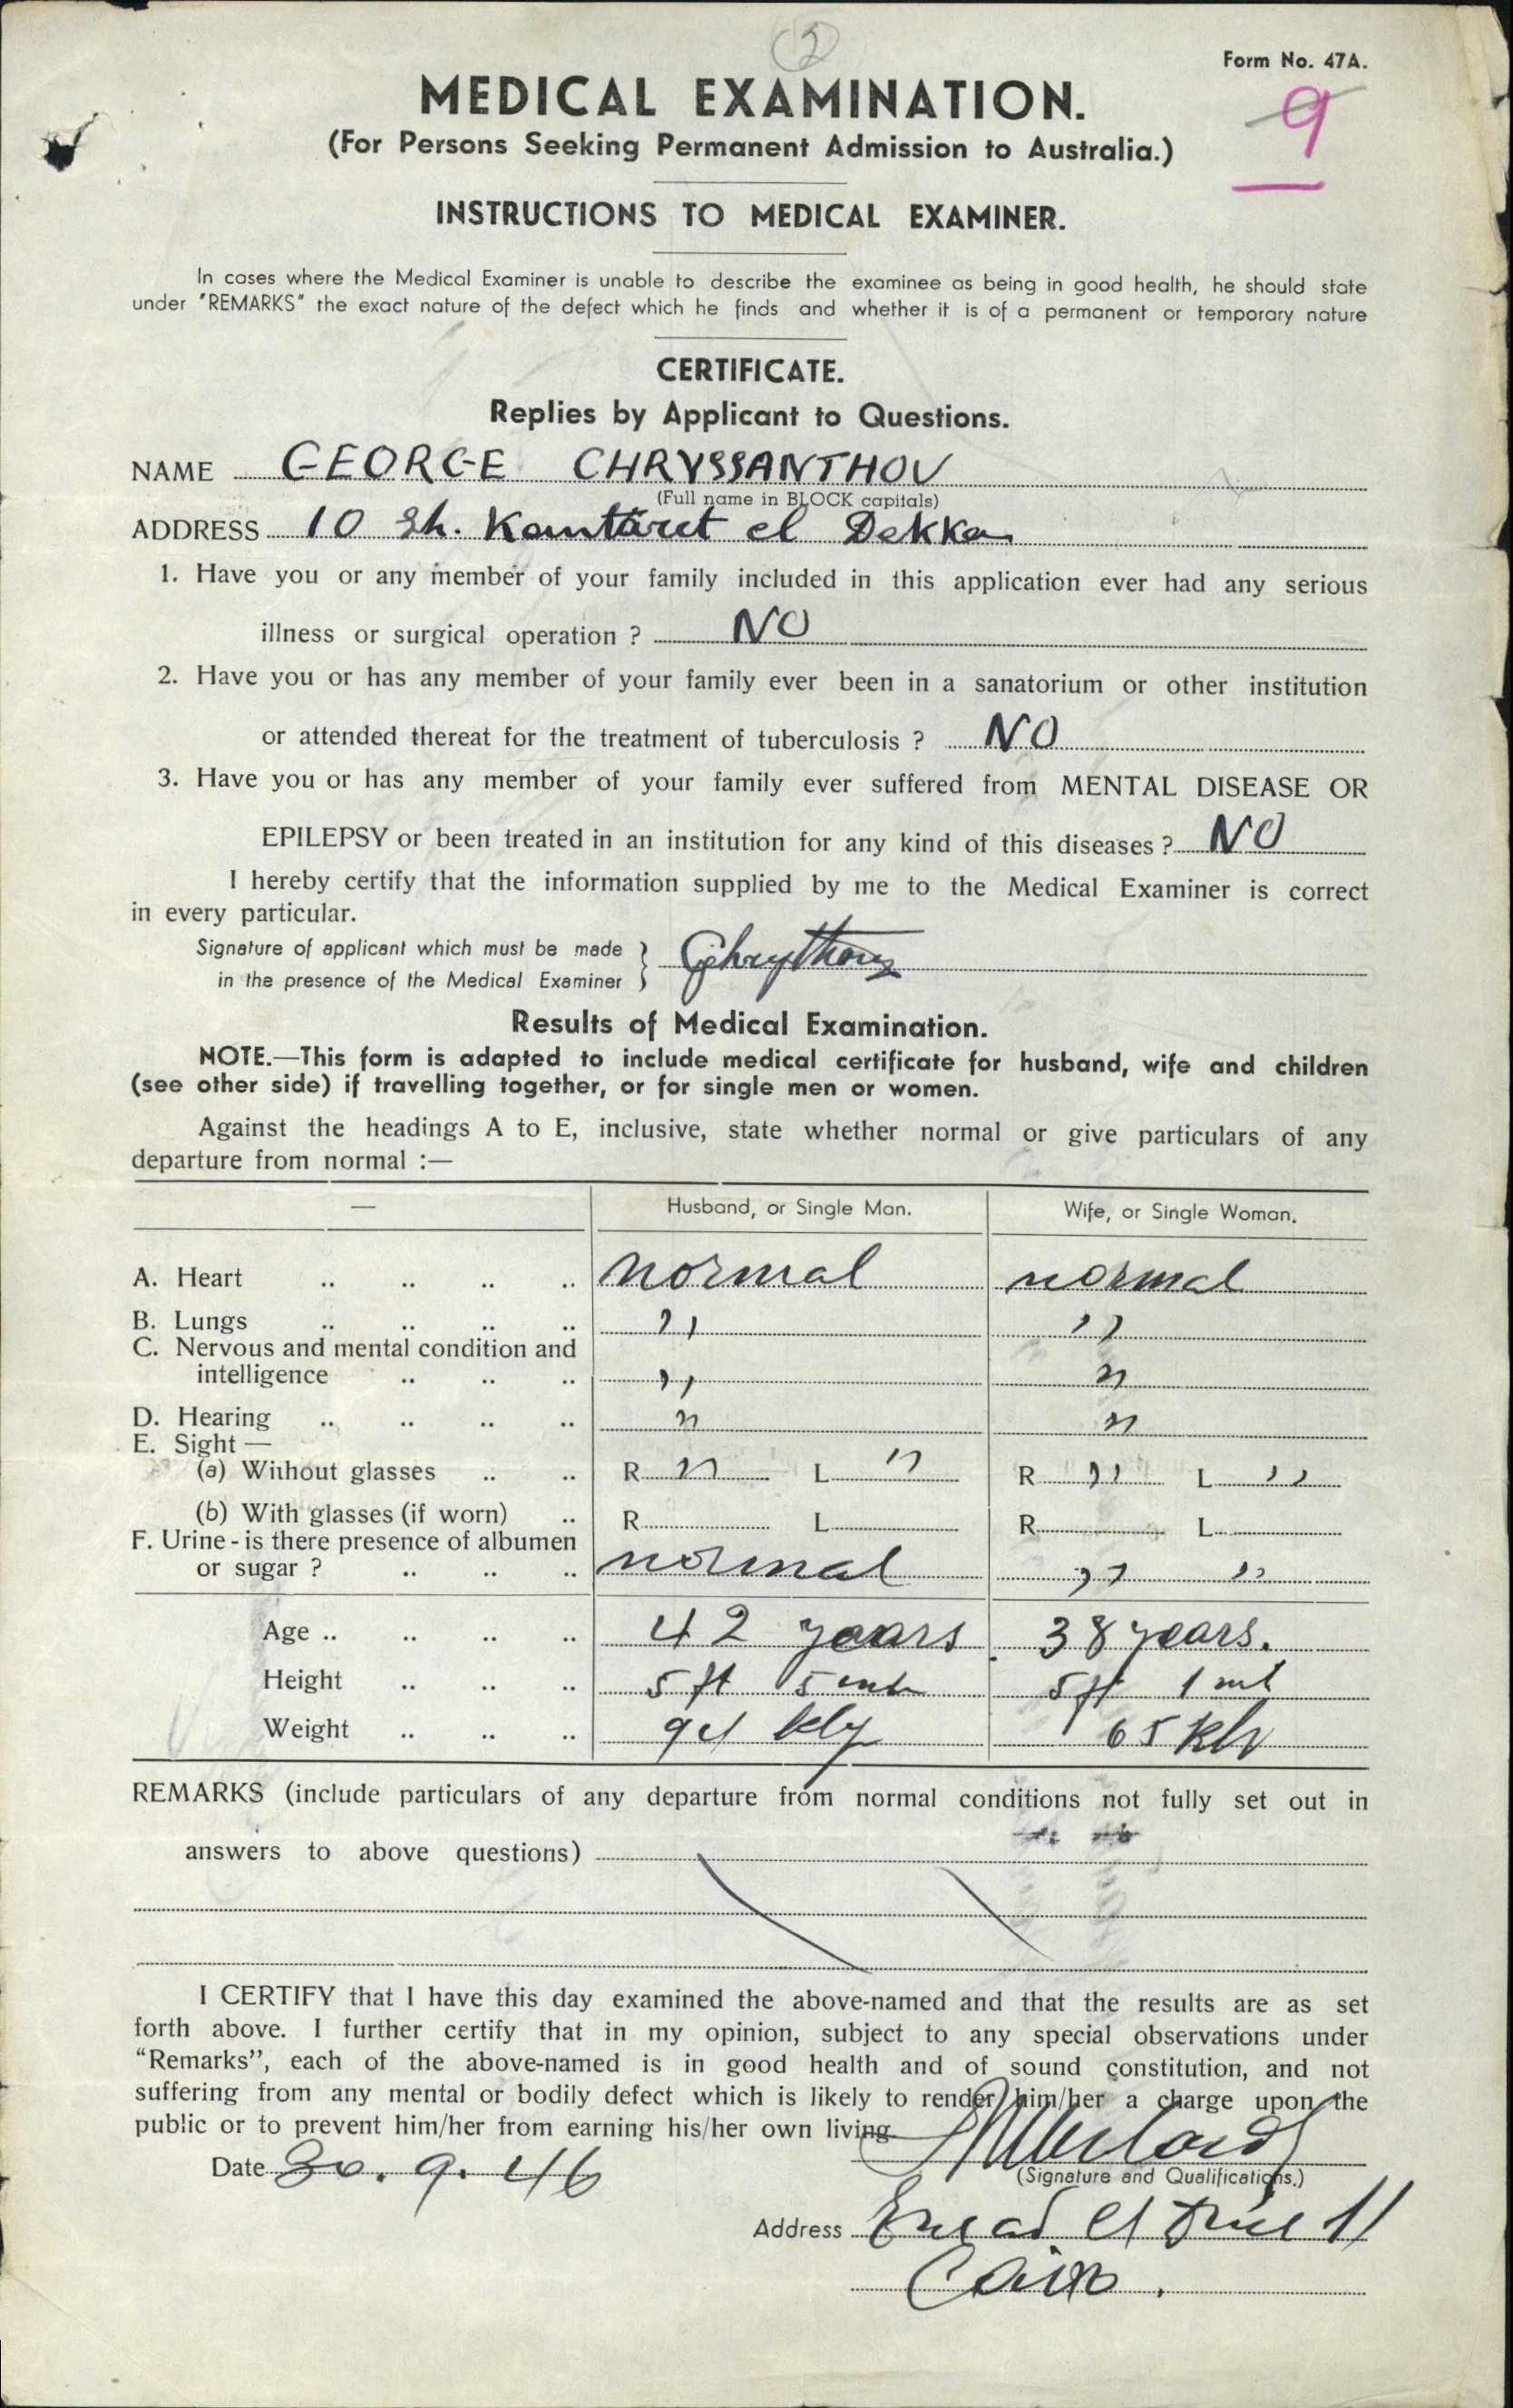 5
Form No. 47A.
9
MEDICAL EXAMINATION.
(For Persons Seeking Permanent Admission to Australia.)
INSTRUCTIONS TO MEDICAL EXAMINER.
In cases where the Medical Examiner is unable to describe the examinee as being in good health, he should state
under "REMARKS" the exact nature of the defect which he finds and whether it is of a permanent or temporary nature
CERTIFICATE.
Replies by Applicant to Questions.
NAME GEORGE CHRYSSANTHOU
(Full name in BLOCK capitals)
ADDRESS 10 Sh. Kantaret el Dekka
1. Have you or any member of your family included in this application ever had any serious
illness or surgical operation ? NO
2. Have you or has any member of your family ever been in a sanatorium or other institution
or attended thereat for the treatment of tuberculosis ? NO
3. Have you or has any member of your family ever suffered from MENTAL DISEASE OR
EPILEPSY or been treated in an institution for any kind of this diseases ? NO
I hereby certify that the information supplied by me to the Medical Examiner is correct
in every particular.
Signature of applicant which must be made
in the presence of the Medical Examiner }
Results of Medical Examination.
NOTE.—This form is adapted to include medical certificate for husband, wife and children
(see other side) if travelling together, or for single men or women.
Against the headings A to E, inclusive, state whether normal or give particulars of any
departure from normal :—
— Husband, or Single Man. Wife, or Single Woman.
A. Heart .. .. .. .. normal normal
B. Lungs .. .. .. .. " "
C. Nervous and mental condition and
intelligence .. .. .. " "
D. Hearing .. .. .. .. " "
E. Sight —
(a) Without glasses .. .. R. " L. " R. " L. "
(b) With glasses (if worn) .. R. L. R. L.
F. Urine - is there presence of albumen
or sugar ? .. .. .. normal " "
Age .. .. .. .. 42 years 38 years.
Height .. .. .. 5 ft 5 5 ft 1
Weight .. .. .. 65
REMARKS (include particulars of any departure from normal conditions not fully set out in
answers to above questions)
I CERTIFY that I have this day examined the above-named and that the results are as set
forth above. I further certify that in my opinion, subject to any special observations under
"Remarks", each of the above-named is in good health and of sound constitution, and not
suffering from any mental or bodily defect which is likely to render him/her a charge upon the
public or to prevent him/her from earning his/her own living.
Date 30. 9. 46
(Signature and Qualifications.)
Address Emad El 11
Cairo.